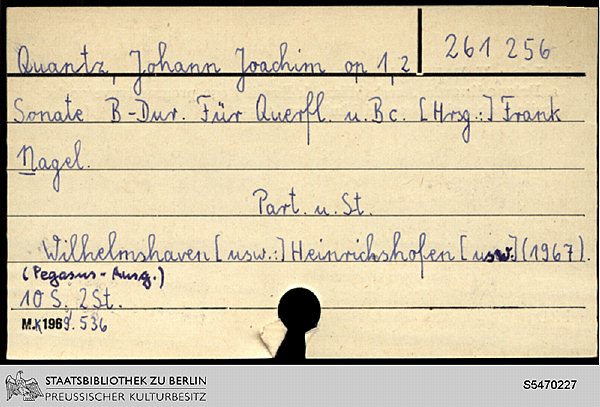 Quantz, Johann Joachim op 1,2
261 256
Sonate B-Dur. Für Querfl. u. Bc. [Hrsg.:] Frank
Nagel.
Part. u. St.
Wilhelmshaven [usw.:] Heinrichshofen [usw.] (1967).
(Pegasus-Ausg.)
10 S. 2 St.
M.K 1969. 536
STAATSBIBLIOTHEK ZU BERLIN
PREUSSISCHER KULTURBESITZ
S5470227